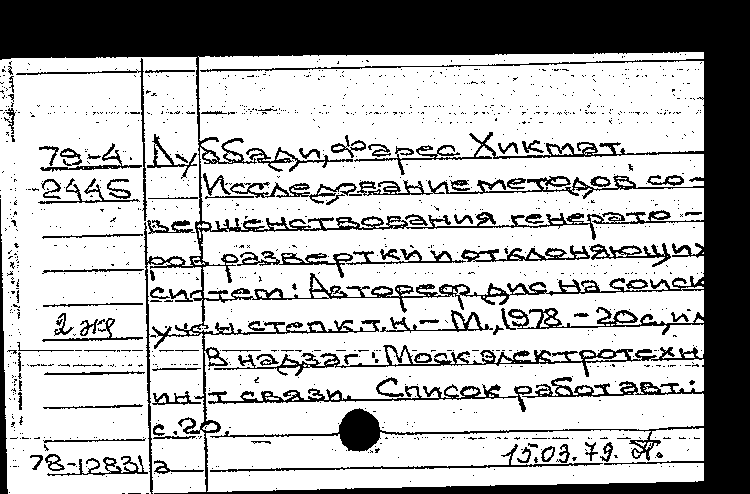 79-4 Луббади, Фарес Хикмат.
2445 Исследование методов со-
вершенствования генерато-
ров развертки и отклоняющих
систем: Автореф. дис. на соиск
2 экз учен. степ. к.т.н. - М., 1978. - 20с., ил
В надзаг.: Моск. электротехн
ин-т связи. Список работ авт.:
с.20.
78-12831а 15.03.79.